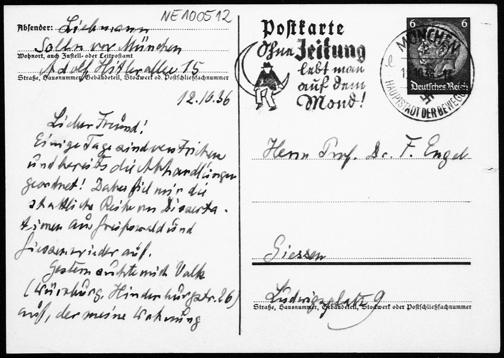 NE100512
Absender: Liebmann
Solln vor München
Wohnort, auch Zustell- oder Leitpostamt
Adolf Hitlerallee 15
Straße, Hausnummer, Gebäudeteil, Stockwerk od. Postschließfachnummer
12.10.36
Lieber Freund!
Einige Tage sind verstrichen
und bereits die Abhandlungen
geordnet! Dabei fiel mir die
stattliche Reihe von Disserta-
tionen aus Greifswald und
Giessen wieder auf.
Gestern suchte mich Volk
(Würzburg, Hindenburgstr. 26)
auf, der meine Wohnung
Postkarte
Ohne Zeitung
lebt man
auf dem
Mond!
MÜNCHEN
HAUPTSTADT DER BEWEGUNG
6 6
Deutsches Reich
Herrn Prof. Dr. F. Engel
Giessen
Ludwigsplatz 9
Straße, Hausnummer, Gebäudeteil, Stockwerk oder Postschließfachnummer